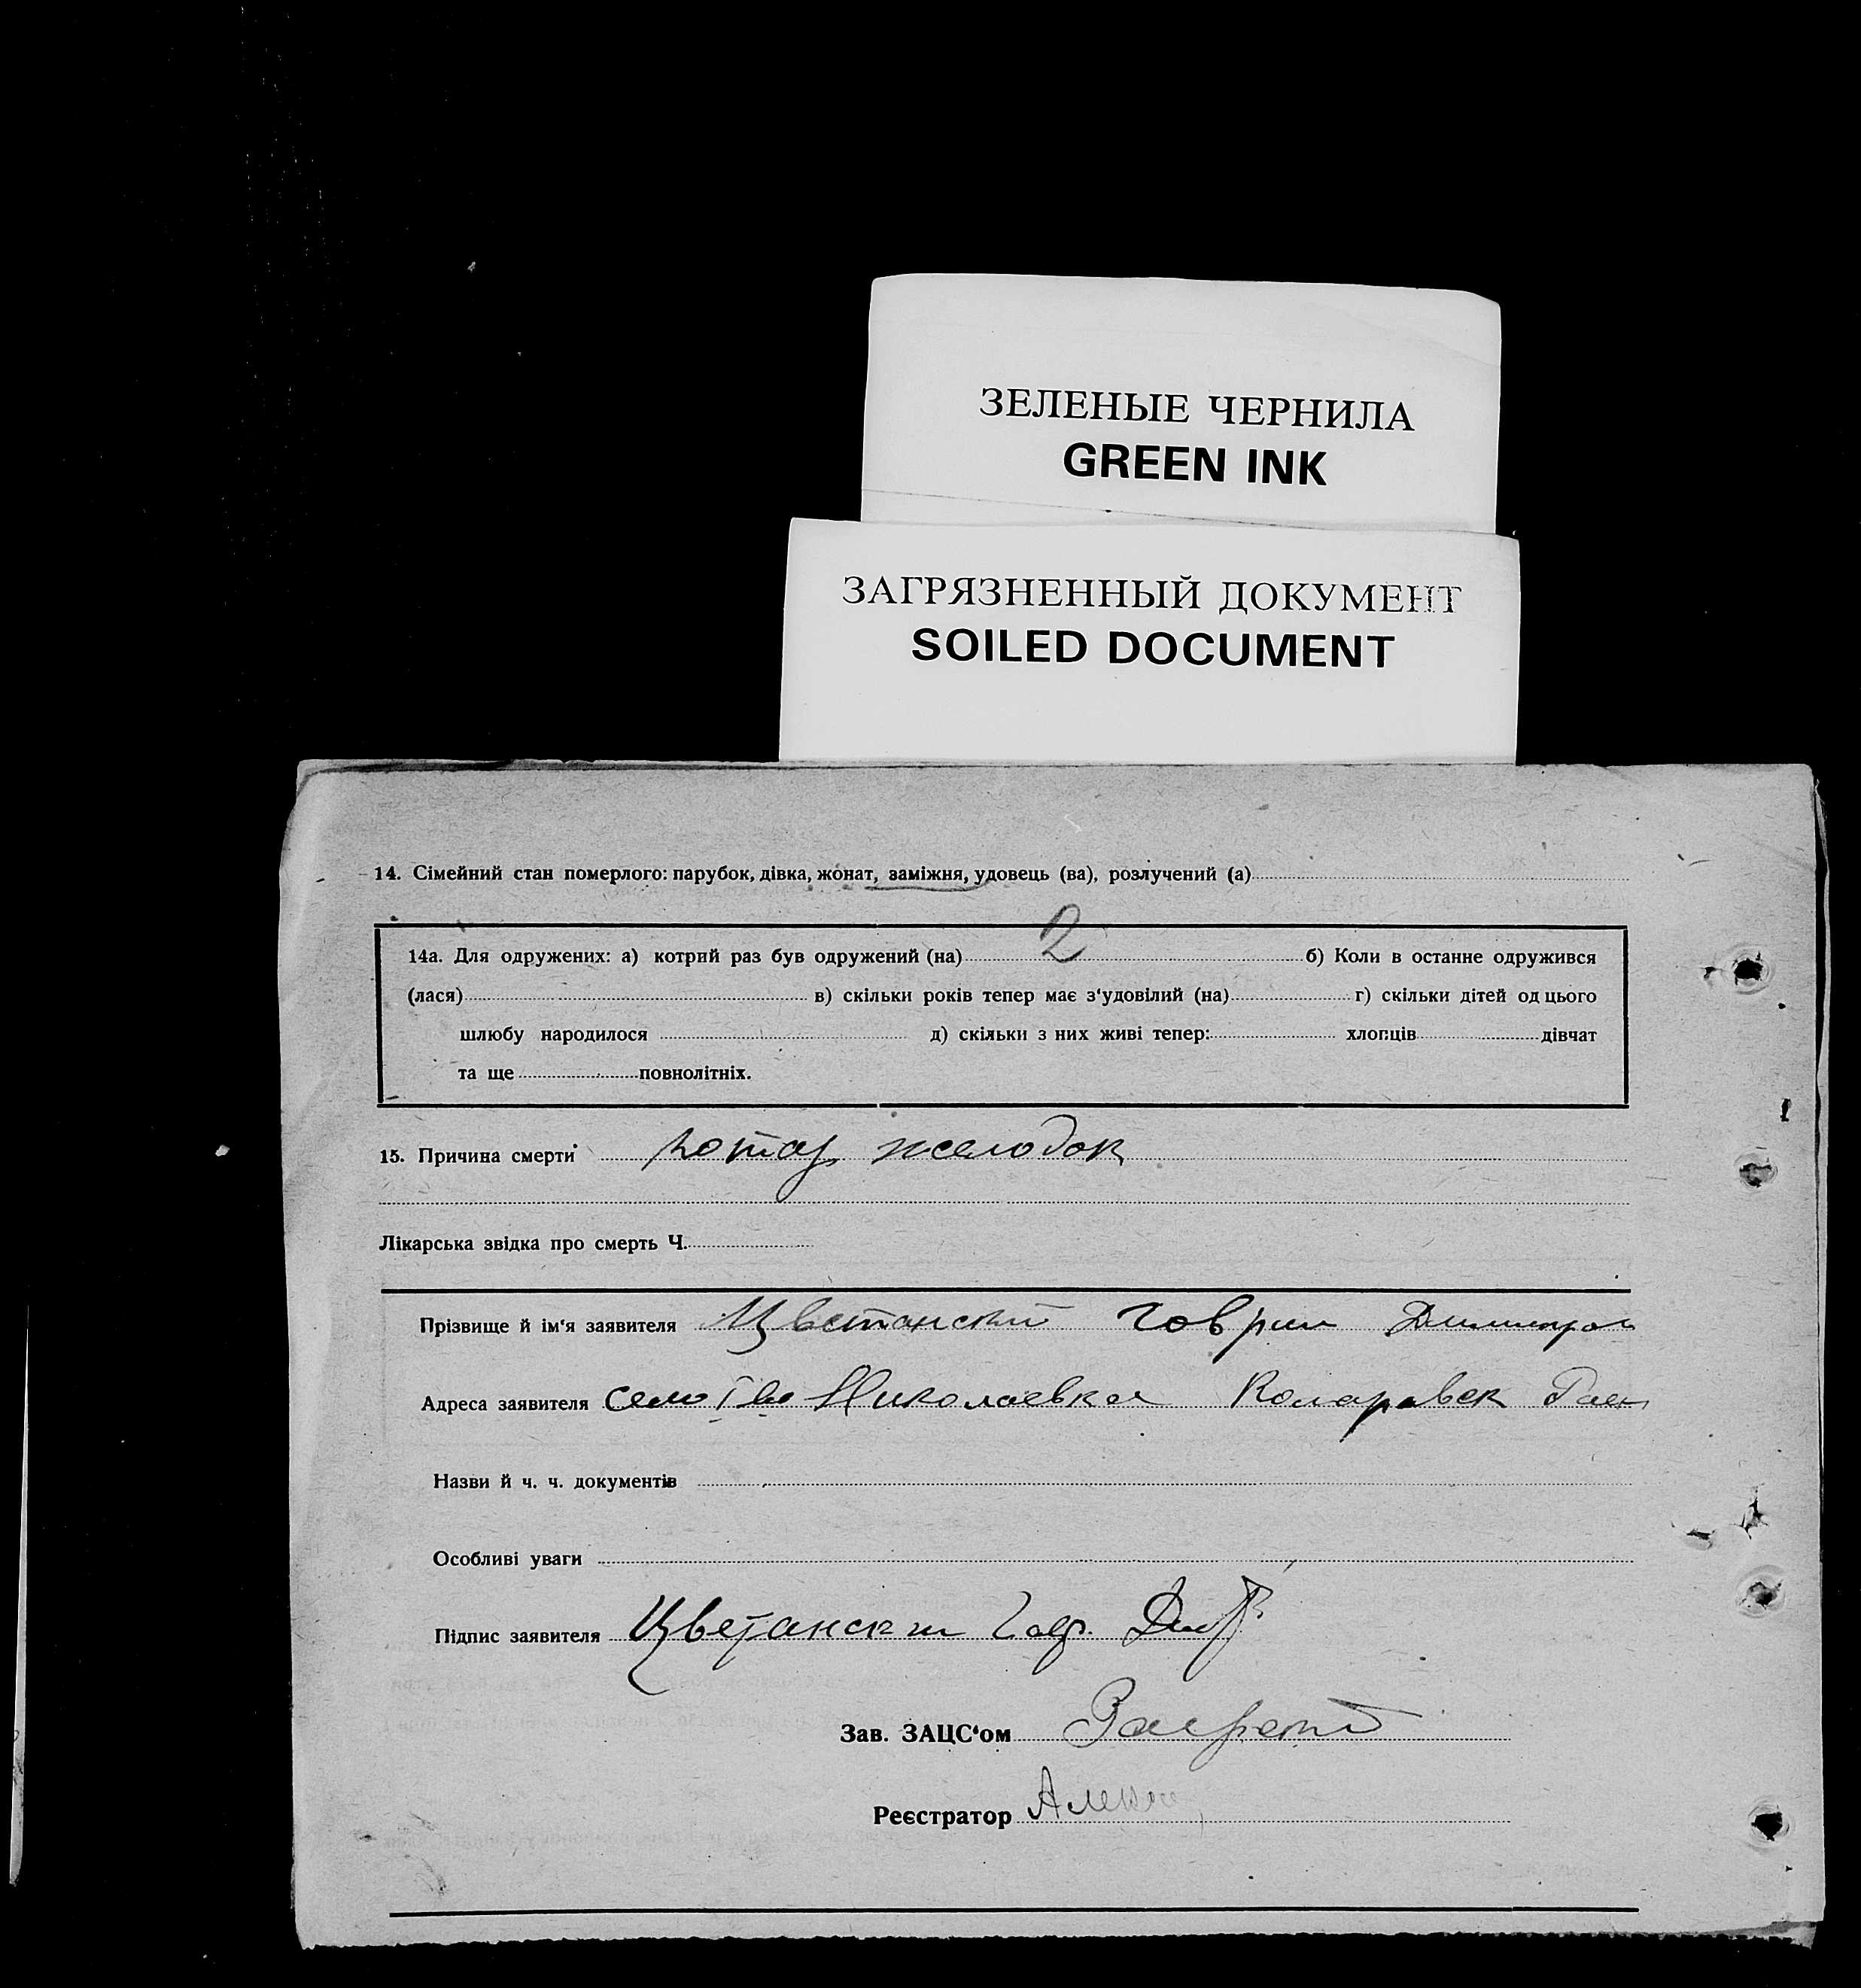 ЗЕЛЕНЫЕ ЧЕРНИЛА
GREEN INK
ЗАГРЯЗНЕННЫЙ ДОКУМЕНТ
SOILED DOCUMENT
14. Сімейний стан померлого: парубок, дівка, жонат, заміжня, удовець (ва), розлучений (а)
14а. Для одружених: а) котрий раз був одружений (на) 2 б) Коли в останнє одружився
(лася) в) скільки років тепер має з‘удовілий (на) г) скільки дітей од цього
шлюбу народилося д) скільки з них живі тепер: хлопців дівчат
та ще повнолітніх.
15. Причина смерти желодок
Лікарська звідка про смерть Ч.
Прізвище й ім‘я заявителя Цветанский Говрил Димитров
Адреса заявителя село Николаевка Коларовск Раен
Назви й ч. ч. документів
Особливі уваги
Підпис заявителя Цветански Гавр.
Зав. ЗАЦС‘ом
Реєстратор